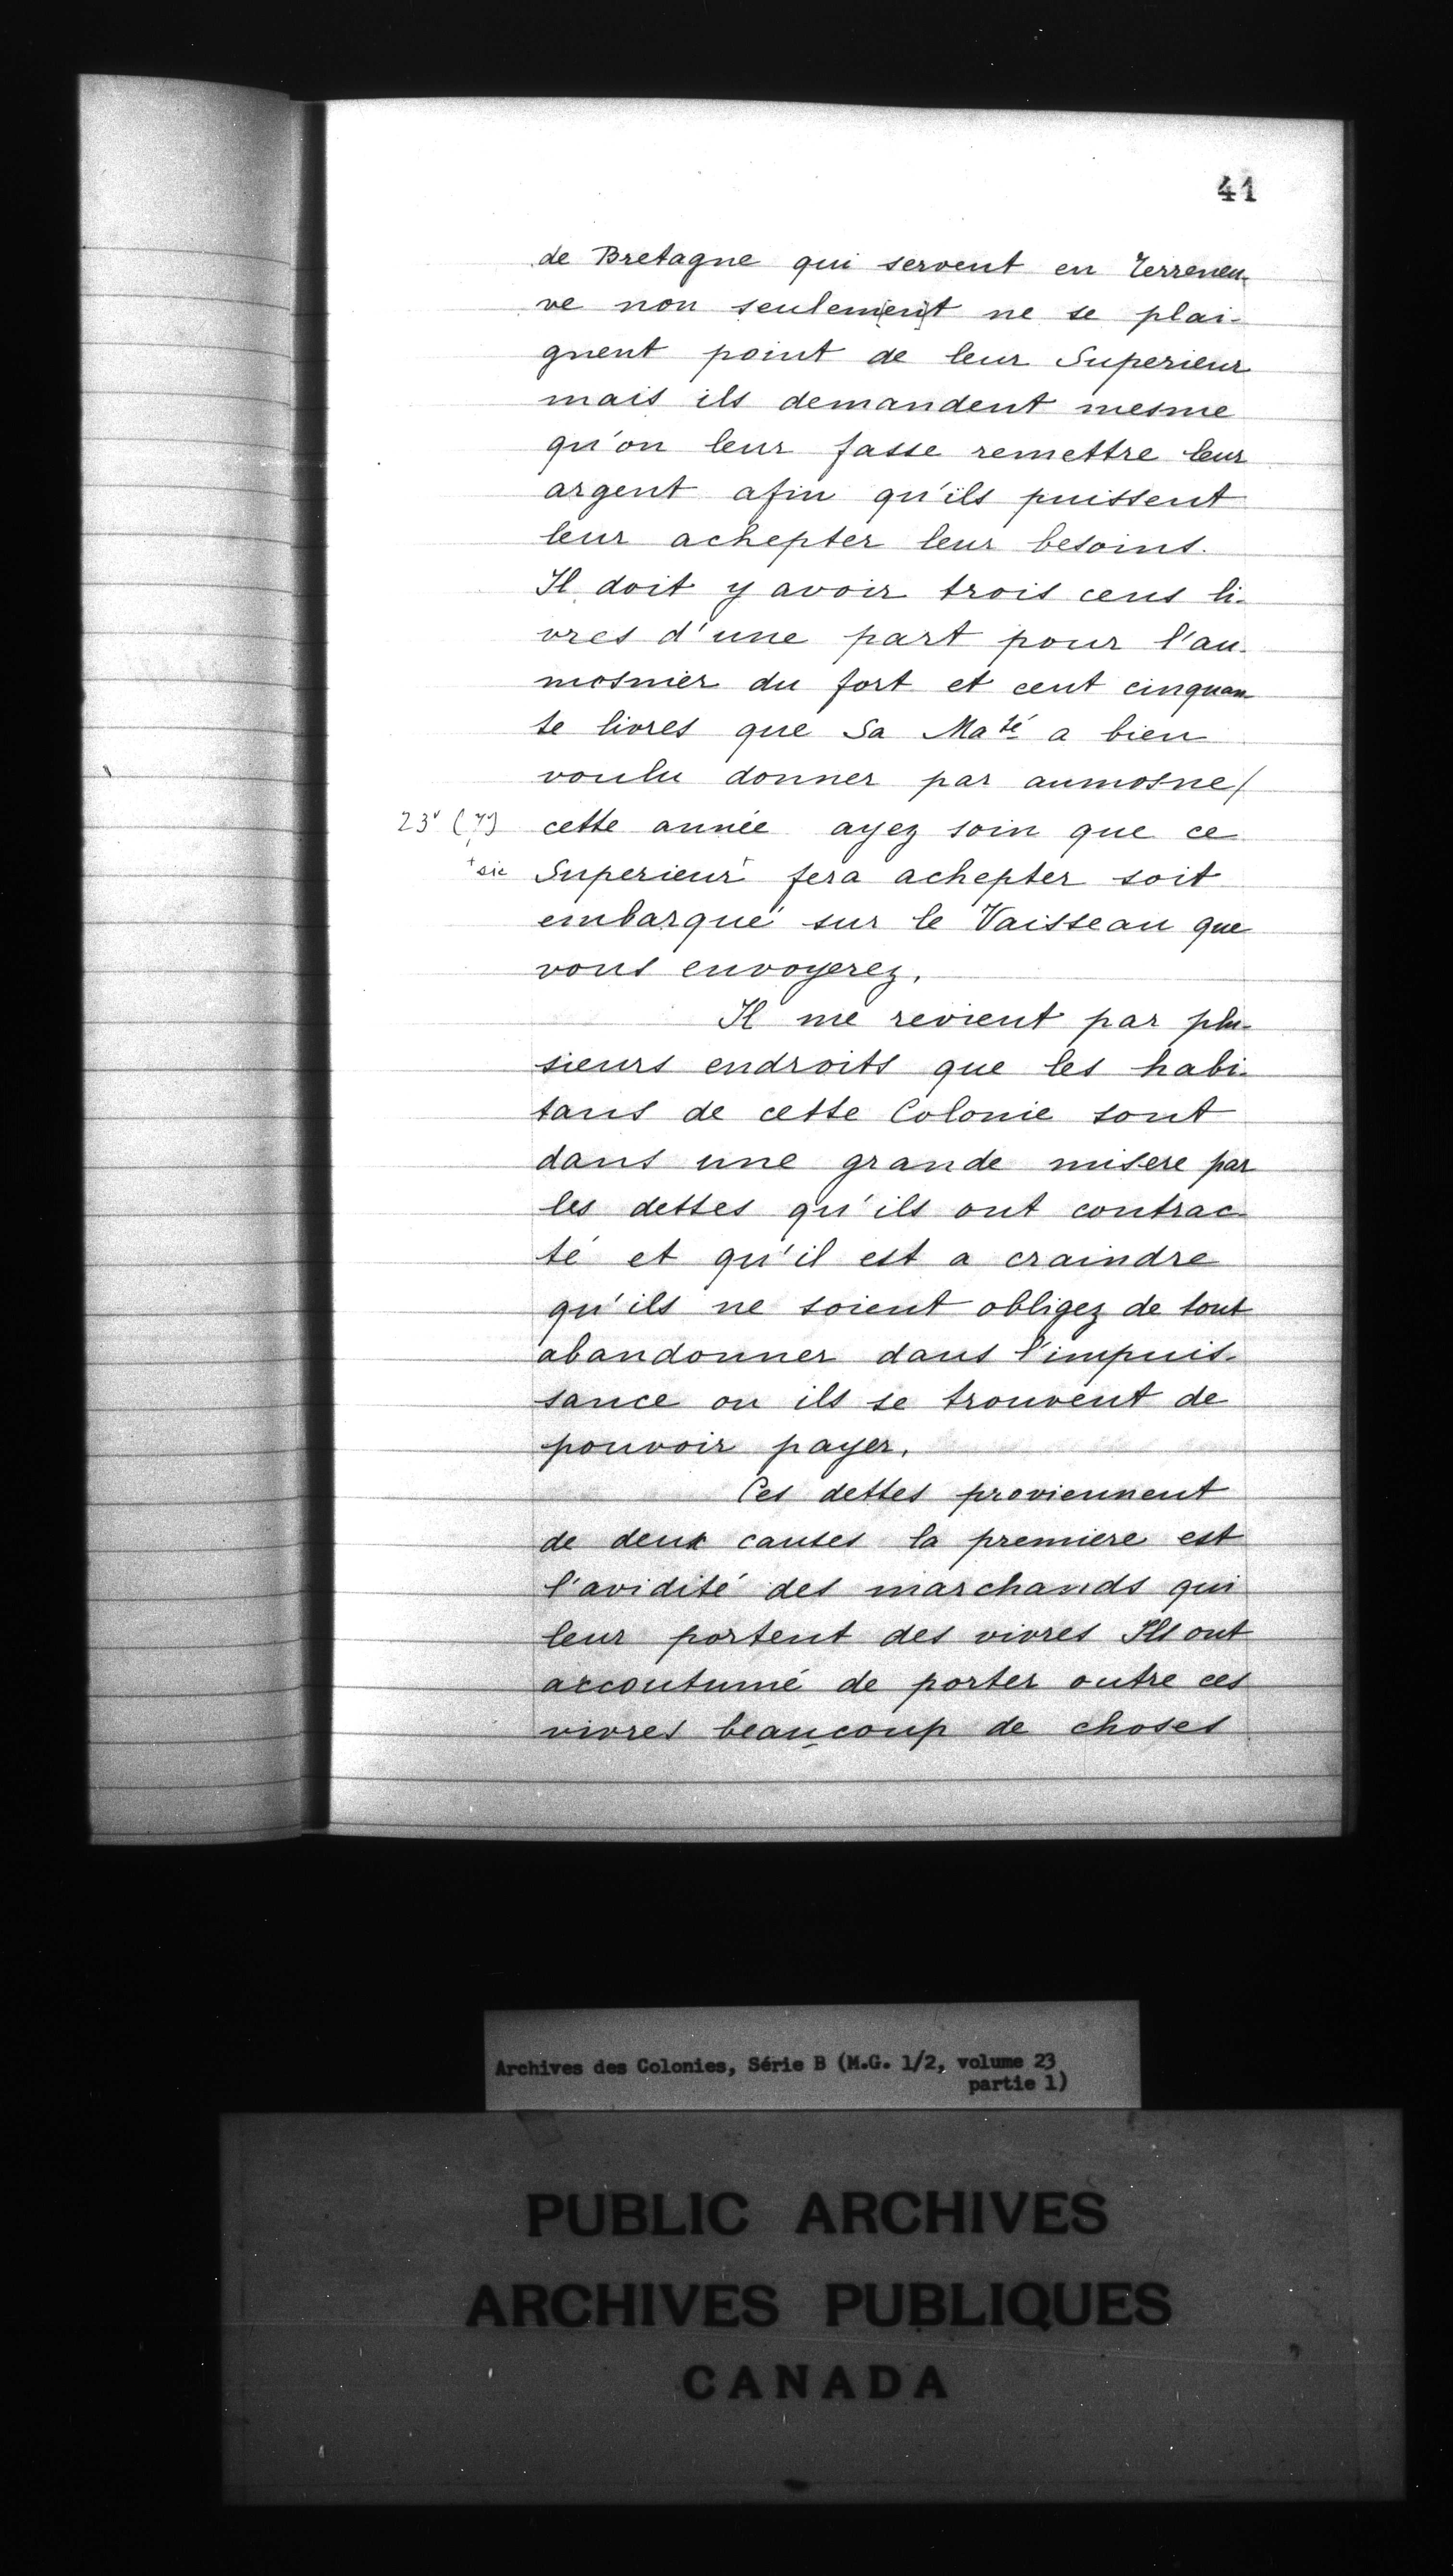 41
de Bretagne qui servent en Terreneu-
ve non seulement ne se plai-
gnent point de leur Superieur
mais ils demandent mesme
qu'on leur fasse remettre leur
argent afin qu'ils puissent
leur achepter leur besoins.
Il doit y avoir trois cens li-
vres d'une part pour l'au-
mosnier du fort et cent cinquan
te livres que Sa Maté a bien
voulu donner par aumosne/
23v cette année ayez soin que ce
+sic Superieur+ fera achepter soit
embarqué sur le Vaisseau que
vous envoyerez.
Il me revient par plu-
sieurs endroits que les habi-
tans de cette Colonie sont
dans une grande misere par
les dettes qu'ils ont contrac-
té et qu'il est a craindre
qu'ils ne soient obligez de tout
abandonner dans l'impuis-
sance ou ils se trouvent de
pouvoir payer.
Ces dettes proviennent
de deux causes la premiere est
l'avidité des marchands qui
leur portent des vivres Ils ont
accoutumé de porter outre ces
vivres beaucoup de choses
Archives des Colonies, Série B (M.G. 1/2, volume 23
partie 1)
PUBLIC ARCHIVES
ARCHIVES PUBLIQUES
CANADA